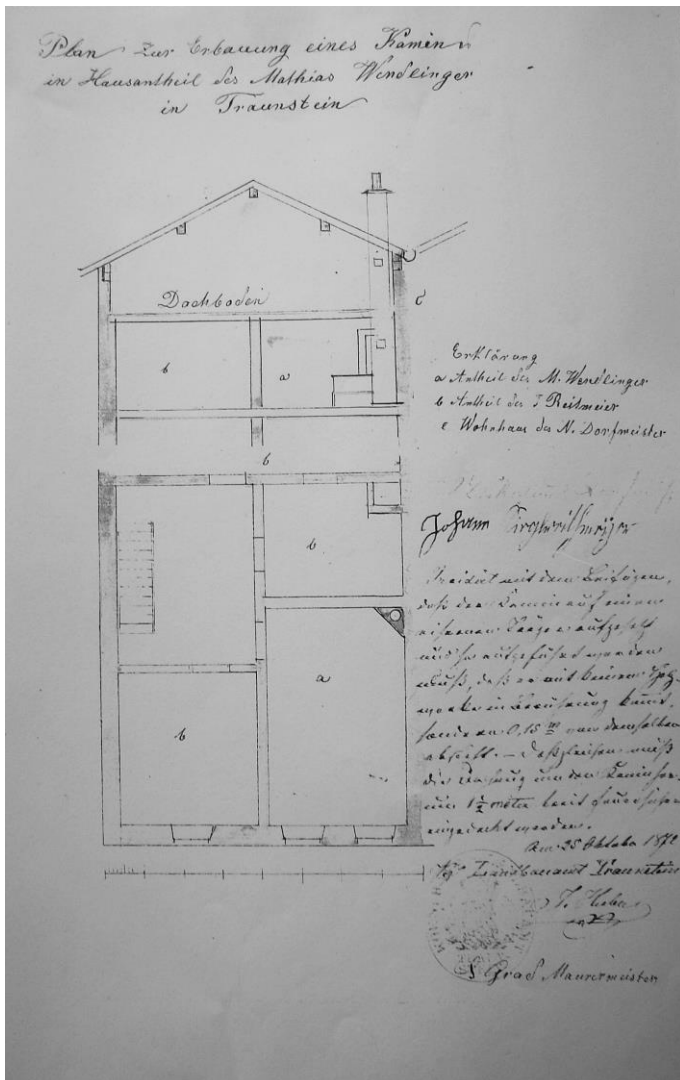 Plan zur Erbauung eines Kamin's
in Hausantheil des Mathias Wendlinger
in Traunstein
Dachboden
c
b
a
b
b
a
b
Erklärung
a Antheil des M. Wendlinger
b Antheil des J. Reitmeier
c Wohnhaus des N. Dorfmeister
Johann
Revidirt mit dem Beifügen,
daß der Kamin auf einem
eisernen Träger aufgesetzt
und so aufgeführt werden
muß, daß er mit keinem Holz-
werke in Berührung kommt,
sondern 0,15 m von demselben
absteht. – Deßgleichen muß
die Dachung um den Kamin
um 1 1/2 meter breit feuersicher
eingedeckt werden.
Am 25 Oktober 1872
Kgl Landbauamt Traunstein
J. Huber
J Graf Maurermeister